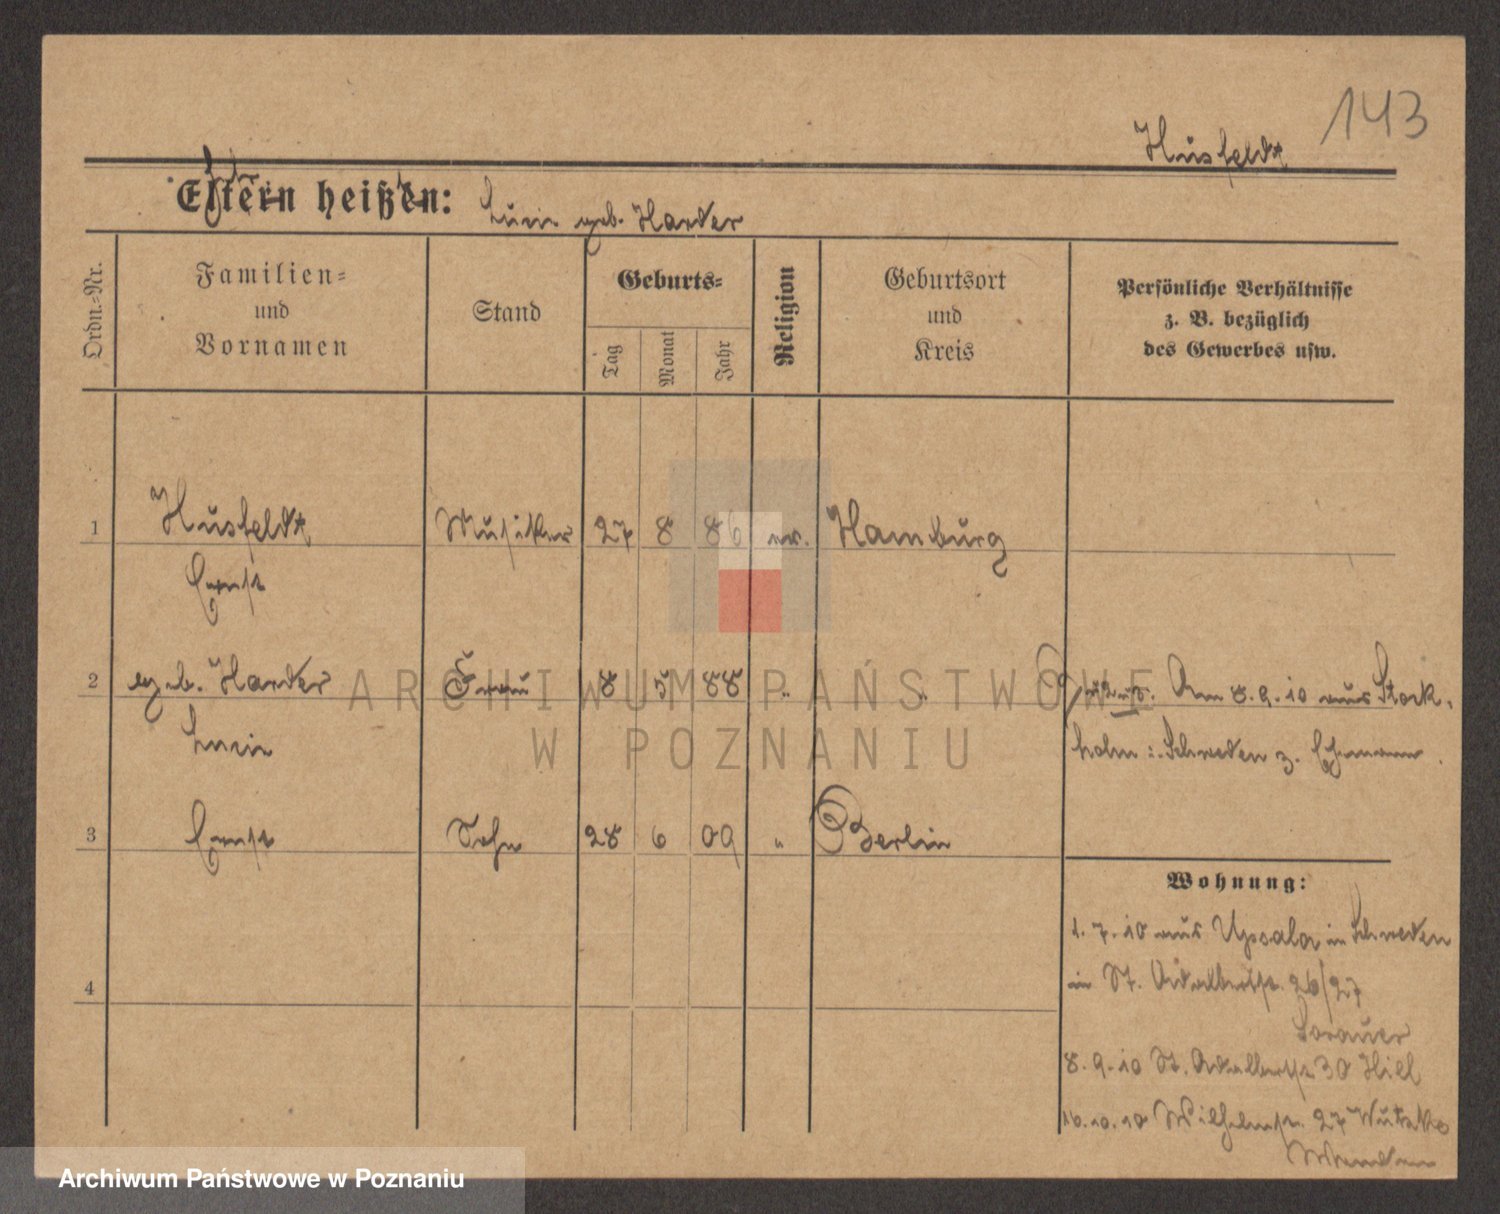 143
Husfeldt
Eltern heißen:
Lucie geb. Harder
Ordn.=Nr.
Familien=
und
Vornamen
Stand
Geburts=
Tag
Monat
Jahr
Religion
Geburtsort
und
Kreis
Persönliche Verhältnisse
z. B. bezüglich
des Gewerbes usw.
1 Husfeldt Musiker 27 8 86 ev. Hamburg
Ernst
2 geb. Harder Frau 8 5 88 " " Am 8.9.10 aus Stock-
Lucie holm i. Schweden z. Ehemann.
3 Ernst Sohn 28 6 09 " Berlin
Wohnung:
1.7.10 aus Upsala in Schweden
in St. Adalbertstr. 26/27
4
Sorauer
8.9.10 St. Adalbertstr. 30 Hiel
16.10.10 Wilhelmstr. 27
ARCHIWUM PAŃSTWOWE
W POZNANIU
Archiwum Państwowe w Poznaniu